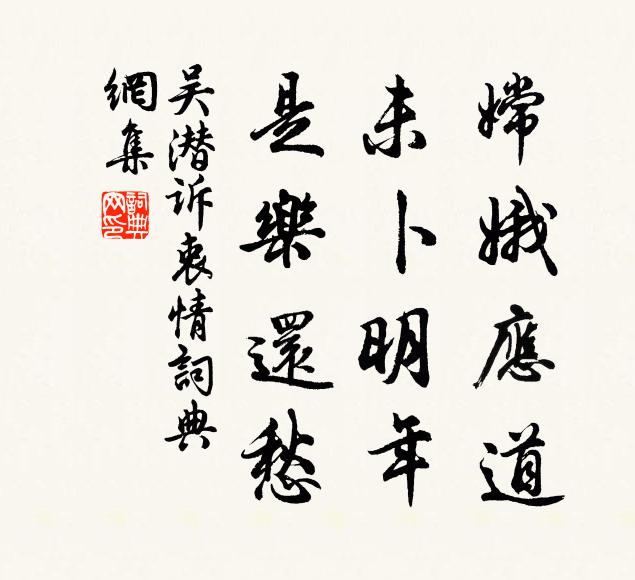 嫦娥應道
未卜明年
是樂還愁
吴潜诉衷情詞典
網集
詞典網印